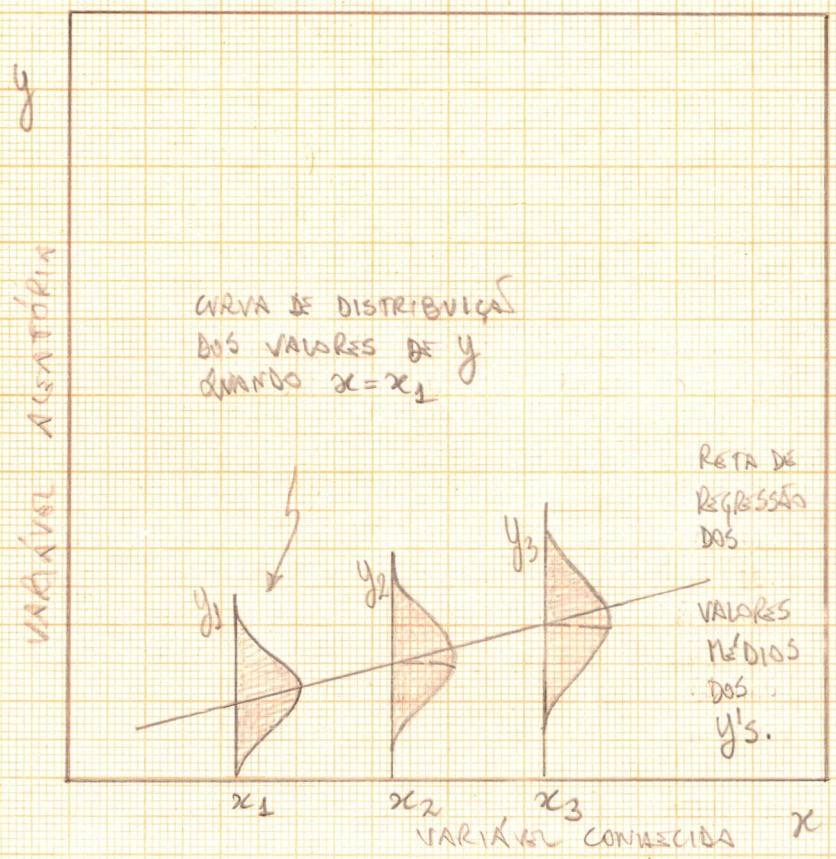 y
VARIÁVEL ALEATÓRIA
CURVA DE DISTRIBUIÇÃO
DOS VALORES DE y
QUANDO x = x1
RETA DE
REGRESSÃO
DOS
VALORES
MÉDIOS
DOS
y'S.
y1
y2
y3
x1
x2
x3
x
VARIÁVEL CONHECIDA